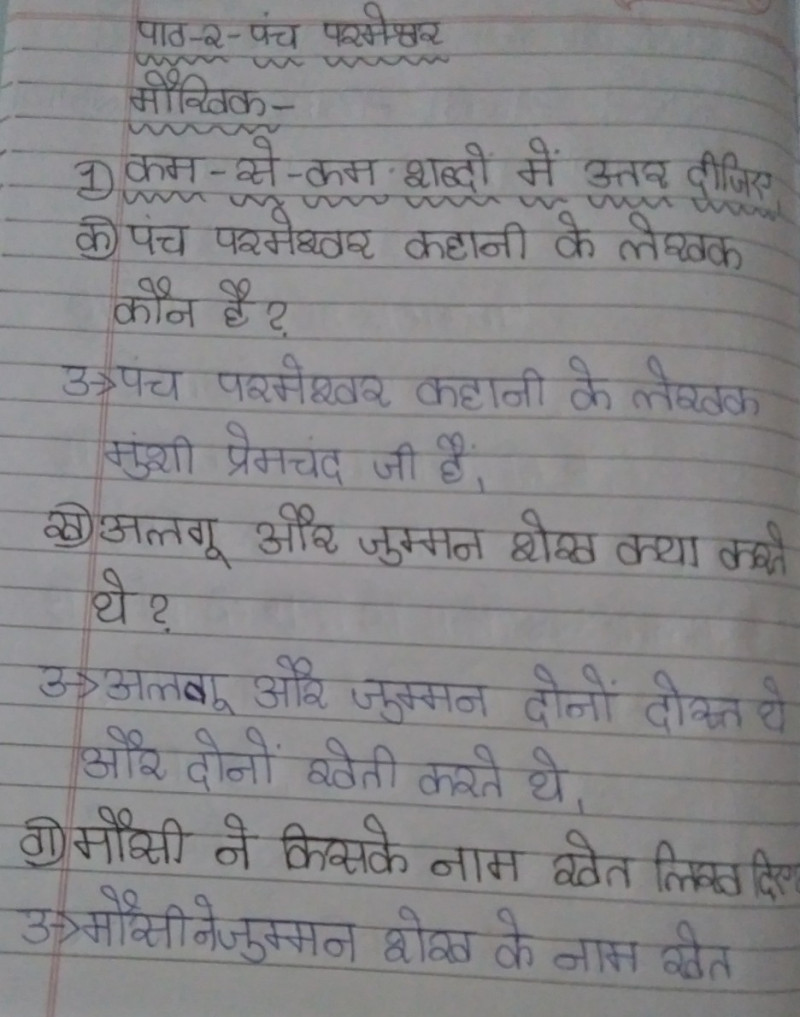 पाठ-२-पंच परमेश्वर
मौखिक-
१) कम-से-कम शब्दों में उत्तर दीजिए
क) पंच परमेश्वर कहानी के लेखक
कौन है ?
उ→पंच परमेश्वर कहानी के लेखक
मुंशी प्रेमचंद जी हैं,
ख) अलगू और जुम्मन शेख क्या करते
थे ?
उ→अलगू और जुम्मन दोनों दोस्त थे
और दोनों खेती करते थे,
ग) मौसी ने किसके नाम खेत लिख दिए
उ→मौसी ने जुम्मन शेख के नाम खेत